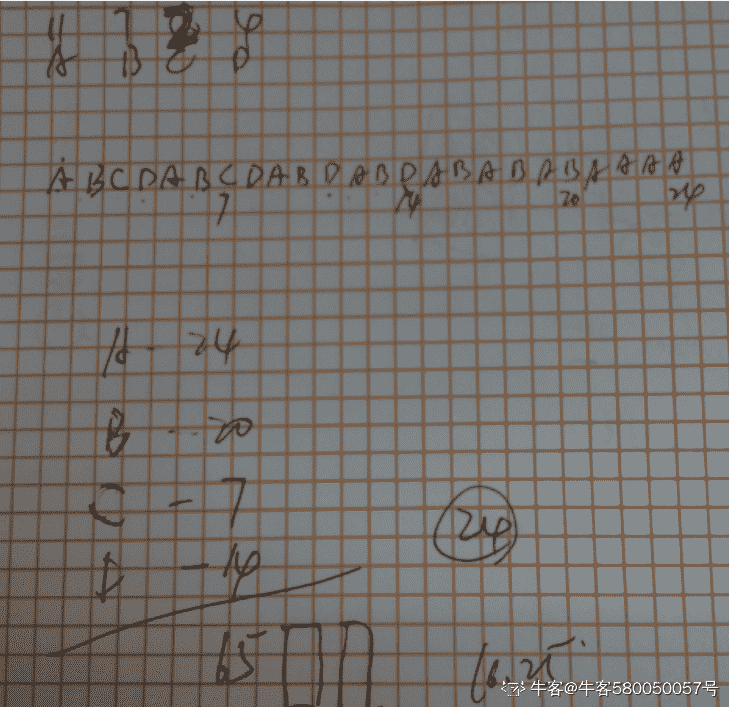 11 7 4
A B C D
A B C D A B C D A B D A B D A B A B A B A A A A
7 14 20 24
A - 24
B - 20
C - 7
D - 14
24
65
16.25
牛客@牛客580050057号